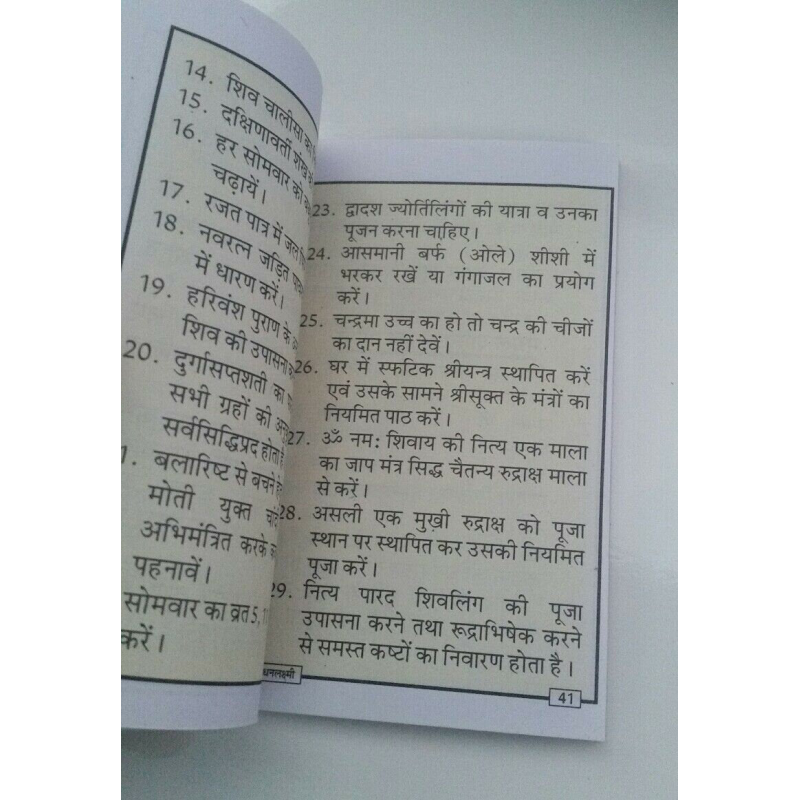 14. शिव चालीसा का
15. दक्षिणावर्ती शंख
16. हर सोमवार को
चढ़ायें।
17. रजत पात्र में जल
18. नवरत्न जड़ित
में धारण करें।
19. हरिवंश पुराण के
शिव की उपासना
20. दुर्गासप्तशती का
सभी ग्रहों की
सर्वसिद्धिप्रद होता है
1. बलारिष्ट से बचने
मोती युक्त
अभिमंत्रित करके
पहनावें।
सोमवार का व्रत 5,
करें।
23. द्वादश ज्योर्तिलिंगों की यात्रा व उनका
पूजन करना चाहिए।
24. आसमानी बर्फ (ओले) शीशी में
भरकर रखें या गंगाजल का प्रयोग
करें।
25. चन्द्रमा उच्च का हो तो चन्द्र की चीजों
का दान नहीं देवें।
26. घर में स्फटिक श्रीयन्त्र स्थापित करें
एवं उसके सामने श्रीसूक्त के मंत्रों का
नियमित पाठ करें।
27. ॐ नम: शिवाय की नित्य एक माला
का जाप मंत्र सिद्ध चैतन्य रुद्राक्ष माला
से करें।
28. असली एक मुखी रुद्राक्ष को पूजा
स्थान पर स्थापित कर उसकी नियमित
पूजा करें।
29. नित्य पारद शिवलिंग की पूजा
उपासना करने तथा रूद्राभिषेक करने
से समस्त कष्टों का निवारण होता है।
धनलक्ष्मी
41